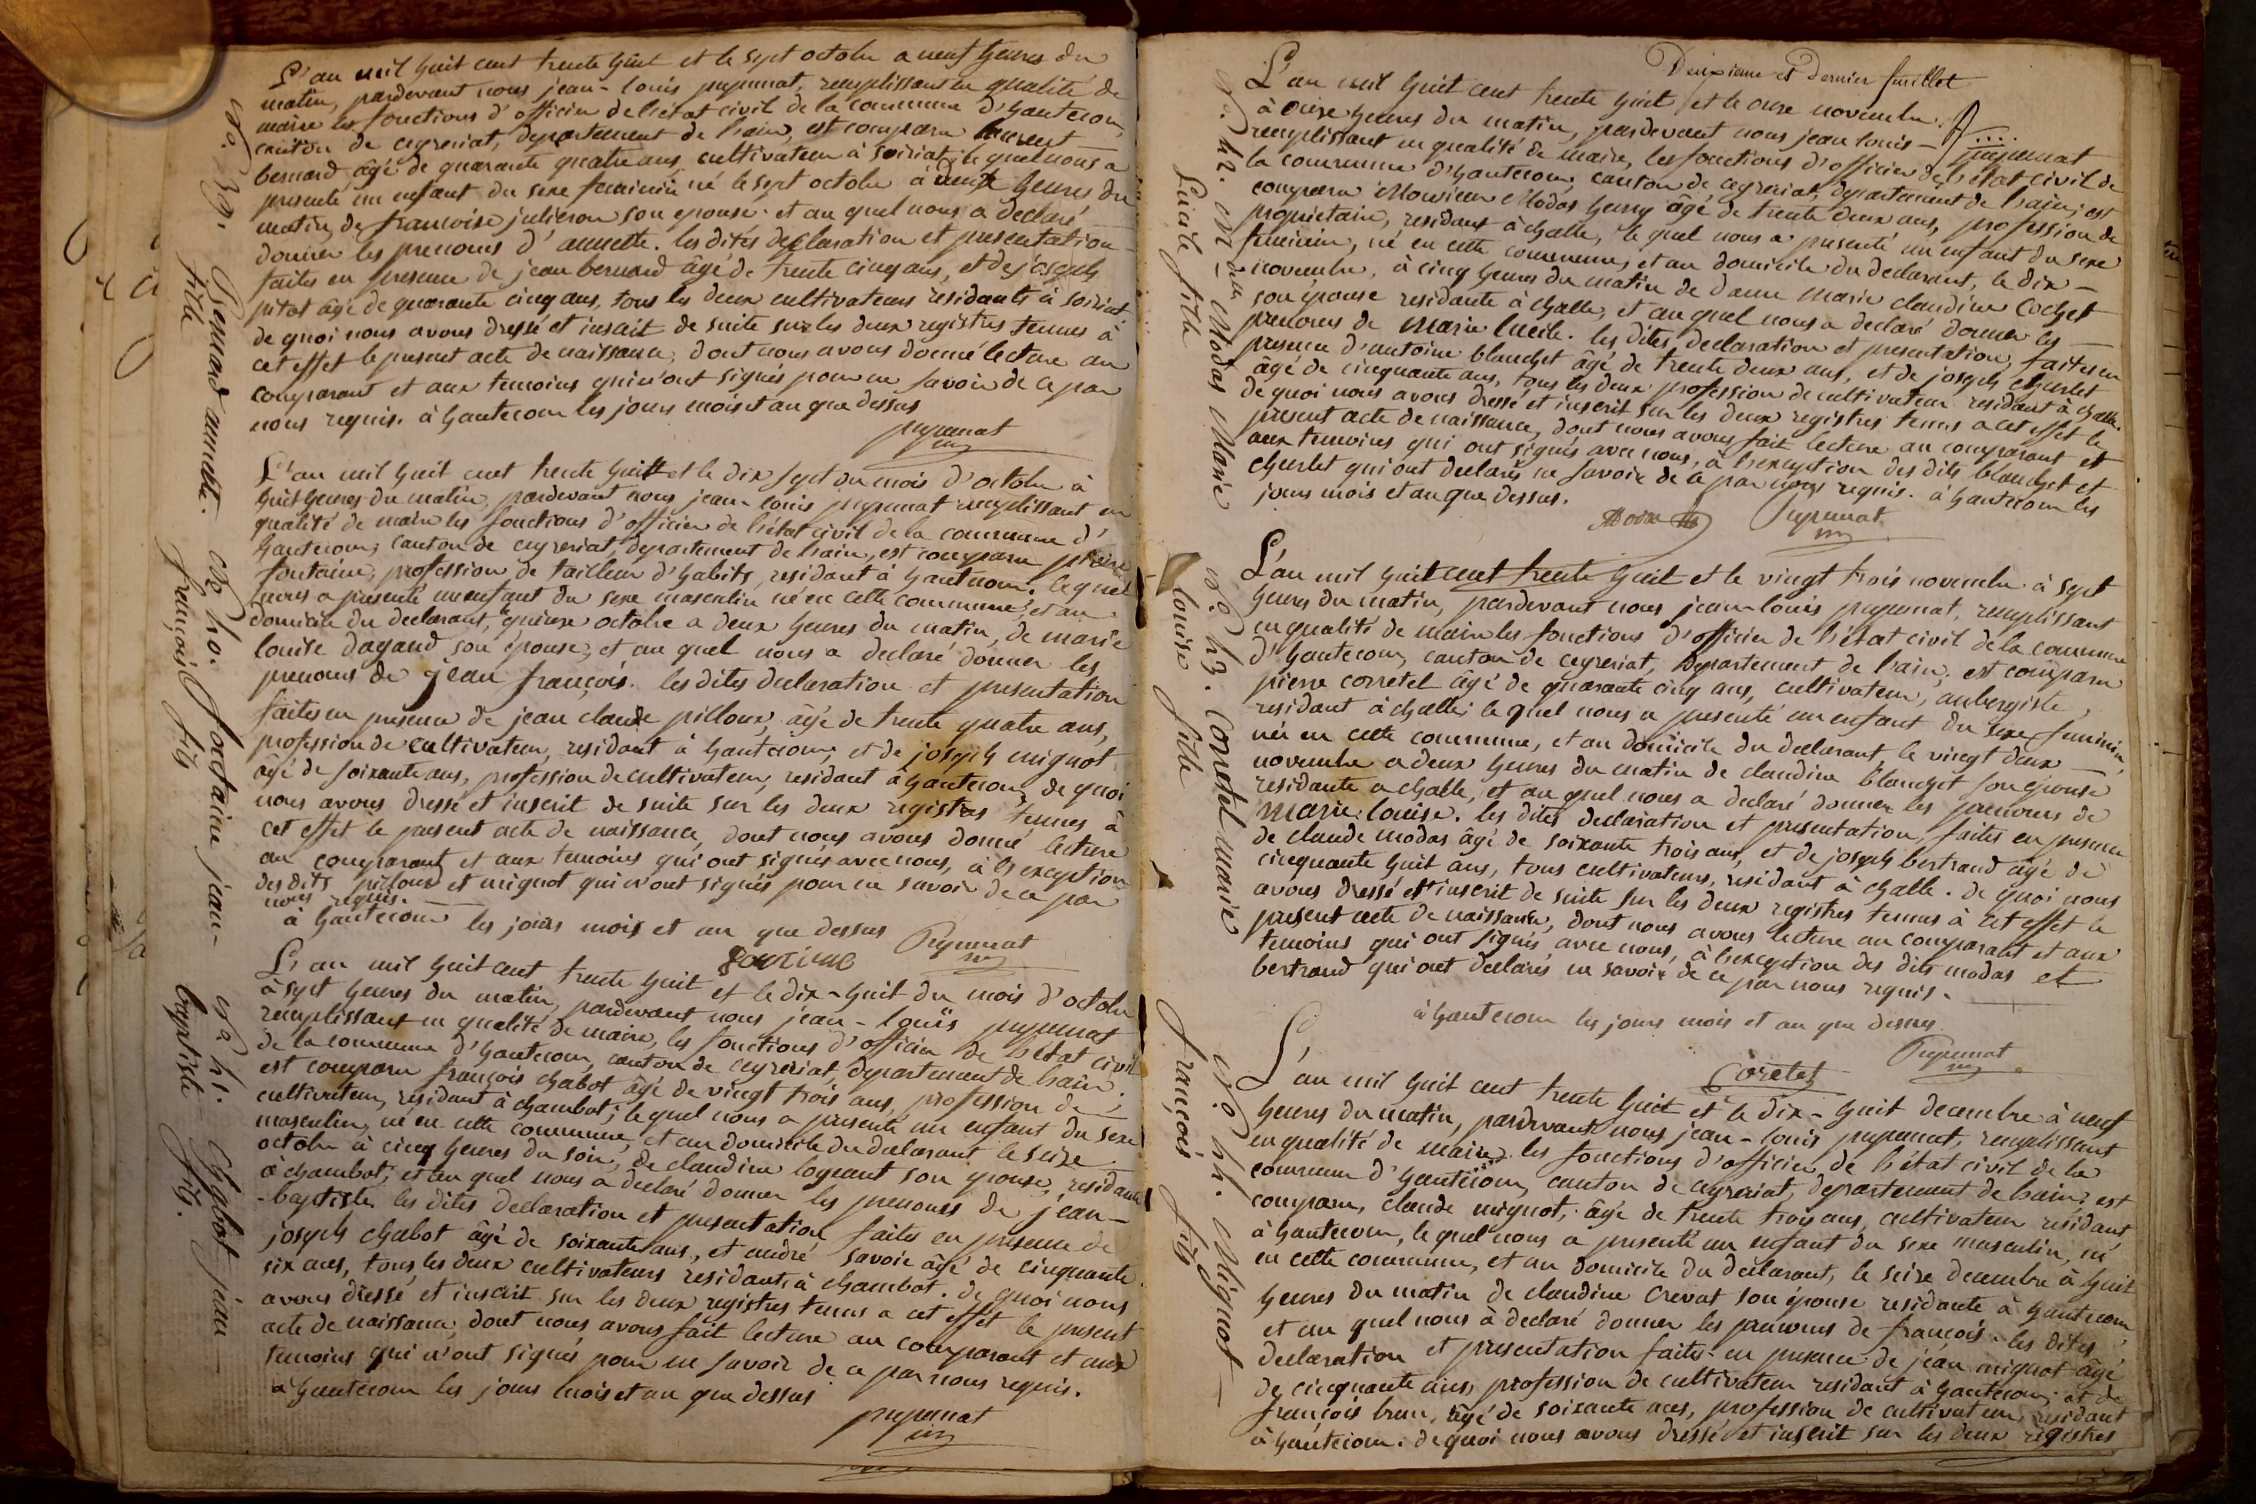 L'an mil huit cent trente huit et le sept octobre a neuf heures du
matin, pardevant nous jean-louis pupunat, remplissant en qualité de
maire les fonctions d'officier de l'état civil de la commune d'hautecour,
canton de ceyzeriat, département de l'ain, est comparu laurent
bernard âgé de quarante quatre ans, cultivateur à soiriat; le quel nous a
presenté un enfant du sexe feminin né le sept octobre à deux heures du
matin, de francoise julieron son epouse. et au quel nous a declaré
donner les prenoms d'annette. les dites declaration et presentation
faites en presence de jean bernard âgé de trente cinq ans, et de joseph
pitot âgé de quarante cinq ans, tous les deux cultivateurs residants à soiriat.
de quoi nous avons dressé et inscrit de suite sur les deux registres tenus à
cet effet le present acte de naissance, dont nous avons donné lecture au
comparant et aux temoins qui n'ont signés pour ne savoir de ce par
nous requis. à hautecour les jours mois et an que dessus
pupunat
No. 39. Bernard annette.
fille
L'an mil huit cent trente huit et le dix sept du mois d'octobre à
huit heures du matin, pardevant nous jean-louis pupunat remplissant en
qualité de maire les fonctions d'officier de l'état civil de la commune d'
hautecour, canton de ceyzeriat, departement de l'ain, est comparu pierre
fontaine, profession de tailleur d'habits, residant à hautecour. le quel
nous a presenté un enfant du sexe masculin né en cette commune, et au
domicile du declarant, quinze octobre a deux heures du matin, de marie
louise dagand son épouse, et au quel nous a declaré donner les
prenoms de jean françois. les dites declaration et presentation
faites en presence de jean claude pilloux, âgé de trente quatre ans,
profession de cultivateur, residant à hautecour; et de joseph mignot
âgé de soixante ans, profession de cultivateur, residant à hautecour, de quoi
nous avons dressé et inscrit de suite sur les deux registres tenus à
cet effet le present acte de naissance, dont nous avons donné lecture
au comparant et aux temoins qui ont signés avec nous, à l'exception
des dits pilloux et mignot qui n'ont signés pour ne savoir de ce par
nous requis.
à hautecour les jours mois et an que dessus
Pupunat
fontaine
No 40. fontaine jean-
françois fils
L'an mil huit cent trente huit et le dix-huit du mois d'octobre
à sept heures du matin, pardevant nous jean-louis pupunat
remplissant en qualité de maire, les fonctions d'officier de l'état civil
de la commune d'hautecour, canton de ceyzeriat, departement de l'ain
est comparu françois chabot âgé de vingt trois ans, profession de
cultivateur, residant à chambot; le quel nous a presenté un enfant du sexe
masculin, né en cette commune, et au domicile du declarant le seize
octobre à cinq heures du soir, de claudine logeant son epouse, residante
à chambot; et au quel nous a declaré donner les prenoms de jean-
-baptiste. les dites declaration et presentation faites en presence de
joseph chabot âgé de soixante ans, et andré savoie âgé de cinquante
six ans, tous les deux cultivateurs residants à chambot. de quoi nous
avons dressé et inscrit sur les deux registres tenus a cet effet le present
acte de naissance, dont nous avons fait lecture au comparant et aux
temoins qui n'ont signés pour ne savoir de ce par nous requis.
à hautecour les jours mois et an que dessus
pupunat
No 41. Chabot jean
baptiste fils.
Deuxieme et Dernier feuillet
L'an mil huit cent trente huit et le onze novembre
à onze heures du matin, pardevant nous jean louis- pupunat
remplissant en qualité de maire, les fonctions d'officier de l'état civil de
la commune d'hautecour, canton de ceyzeriat, departement de l'ain, est
comparu Monsieur Modas henry âgé de trente deux ans, profession de
proprietaire, residant à challe, le quel nous a presenté un enfant du sexe
feminin, né en cette commune, et au domicile du declarant, le dix-
novembre, à cinq heures du matin de dame marie claudine Cochet
son épouse residante à challe, et au quel nous a declaré donner les
prenoms de marie lucile. les dites declaration et presentation, faites en
presence d'antoine blanchet âgé de trente deux ans, et de joseph churlet
âgé de cinquante ans, tous les deux profession de cultivateur residant à challe.
de quoi nous avons dressé et inscrit sur les deux registres tenus a cet effet le
present acte de naissance, dont nous avons fait lecture au comparant et
aux temoins qui ont signés avec nous, à l'exception des dits blanchet et
churlet qui ont declarés ne savoir de ce par nous requis. à hautecour les
jours mois et an que dessus.
Pupunat
No. 42. Modas Marie
Lucile fille
L'an mil huit cent trente huit et le vingt trois novembre à sept
heures du matin, pardevant nous jean-louis pupunat, remplissant
en qualité de maire les fonctions d'officier de l'état civil de la commune
d'hautecour, canton de ceyzeriat, departement de l'ain, est comparu
pierre corretel âgé de quarante cinq ans, cultivateur, aubergiste,
residant à challe; le quel nous a presenté un enfant du sexe feminin,
né en cette commune, et au domicile du declarant le vingt deux
novembre a deux heures du matin de claudine blanchet son épouse
residante a challe, et au quel nous a declaré donner les prenoms de
marie louise. les dites declaration et presentation, faites en presence
de claude modas âgé de soixante trois ans, et de joseph bertrand âgé de
cinquante huit ans, tous cultivateurs, residant à challe. de quoi nous
avons dressé et inscrit de suite sur les deux registres tenus à cet effet le
present acte de naissance, dont nous avons lecture au comparant et aux
temoins qui ont signés avec nous, à l'exception des dits modas et
bertrand qui ont declarés ne savoir de ce par nous requis.
à hautecour les jours mois et an que dessus
Pupunat
Coretet
No. 43. Corretel marie
louise fille
L'an mil huit cent trente huit et le dix-huit decembre à neuf
heures du matin, pardevant nous jean-louis pupunat, remplissant
en qualité de maire les fonctions d'officier, de l'état civil de la
commune d'hautecour, canton de ceyzeriat, departement de l'ain, est
comparu, claude mignot, âgé de trente trois ans, cultivateur residant
à hautecour, le quel nous a presenté un enfant du sexe masculin, né
en cette commune, et au domicile du declarant, le seize decembre à huit
heures du matin de claudine crevat son épouse residante à hautecour,
et au quel nous à declaré donner les prenoms de françois. les dites
declaration et presentation faites en presence de jean mignot âgé
de cinquante ans, profession de cultivateur residant à hautecour, et de
françois brun, âgé de soixante ans, profession de cultivateur, residant
à hautecour. de quoi nous avons dressé et inscrit sur les deux registres
No 44. Mignot
françois fils